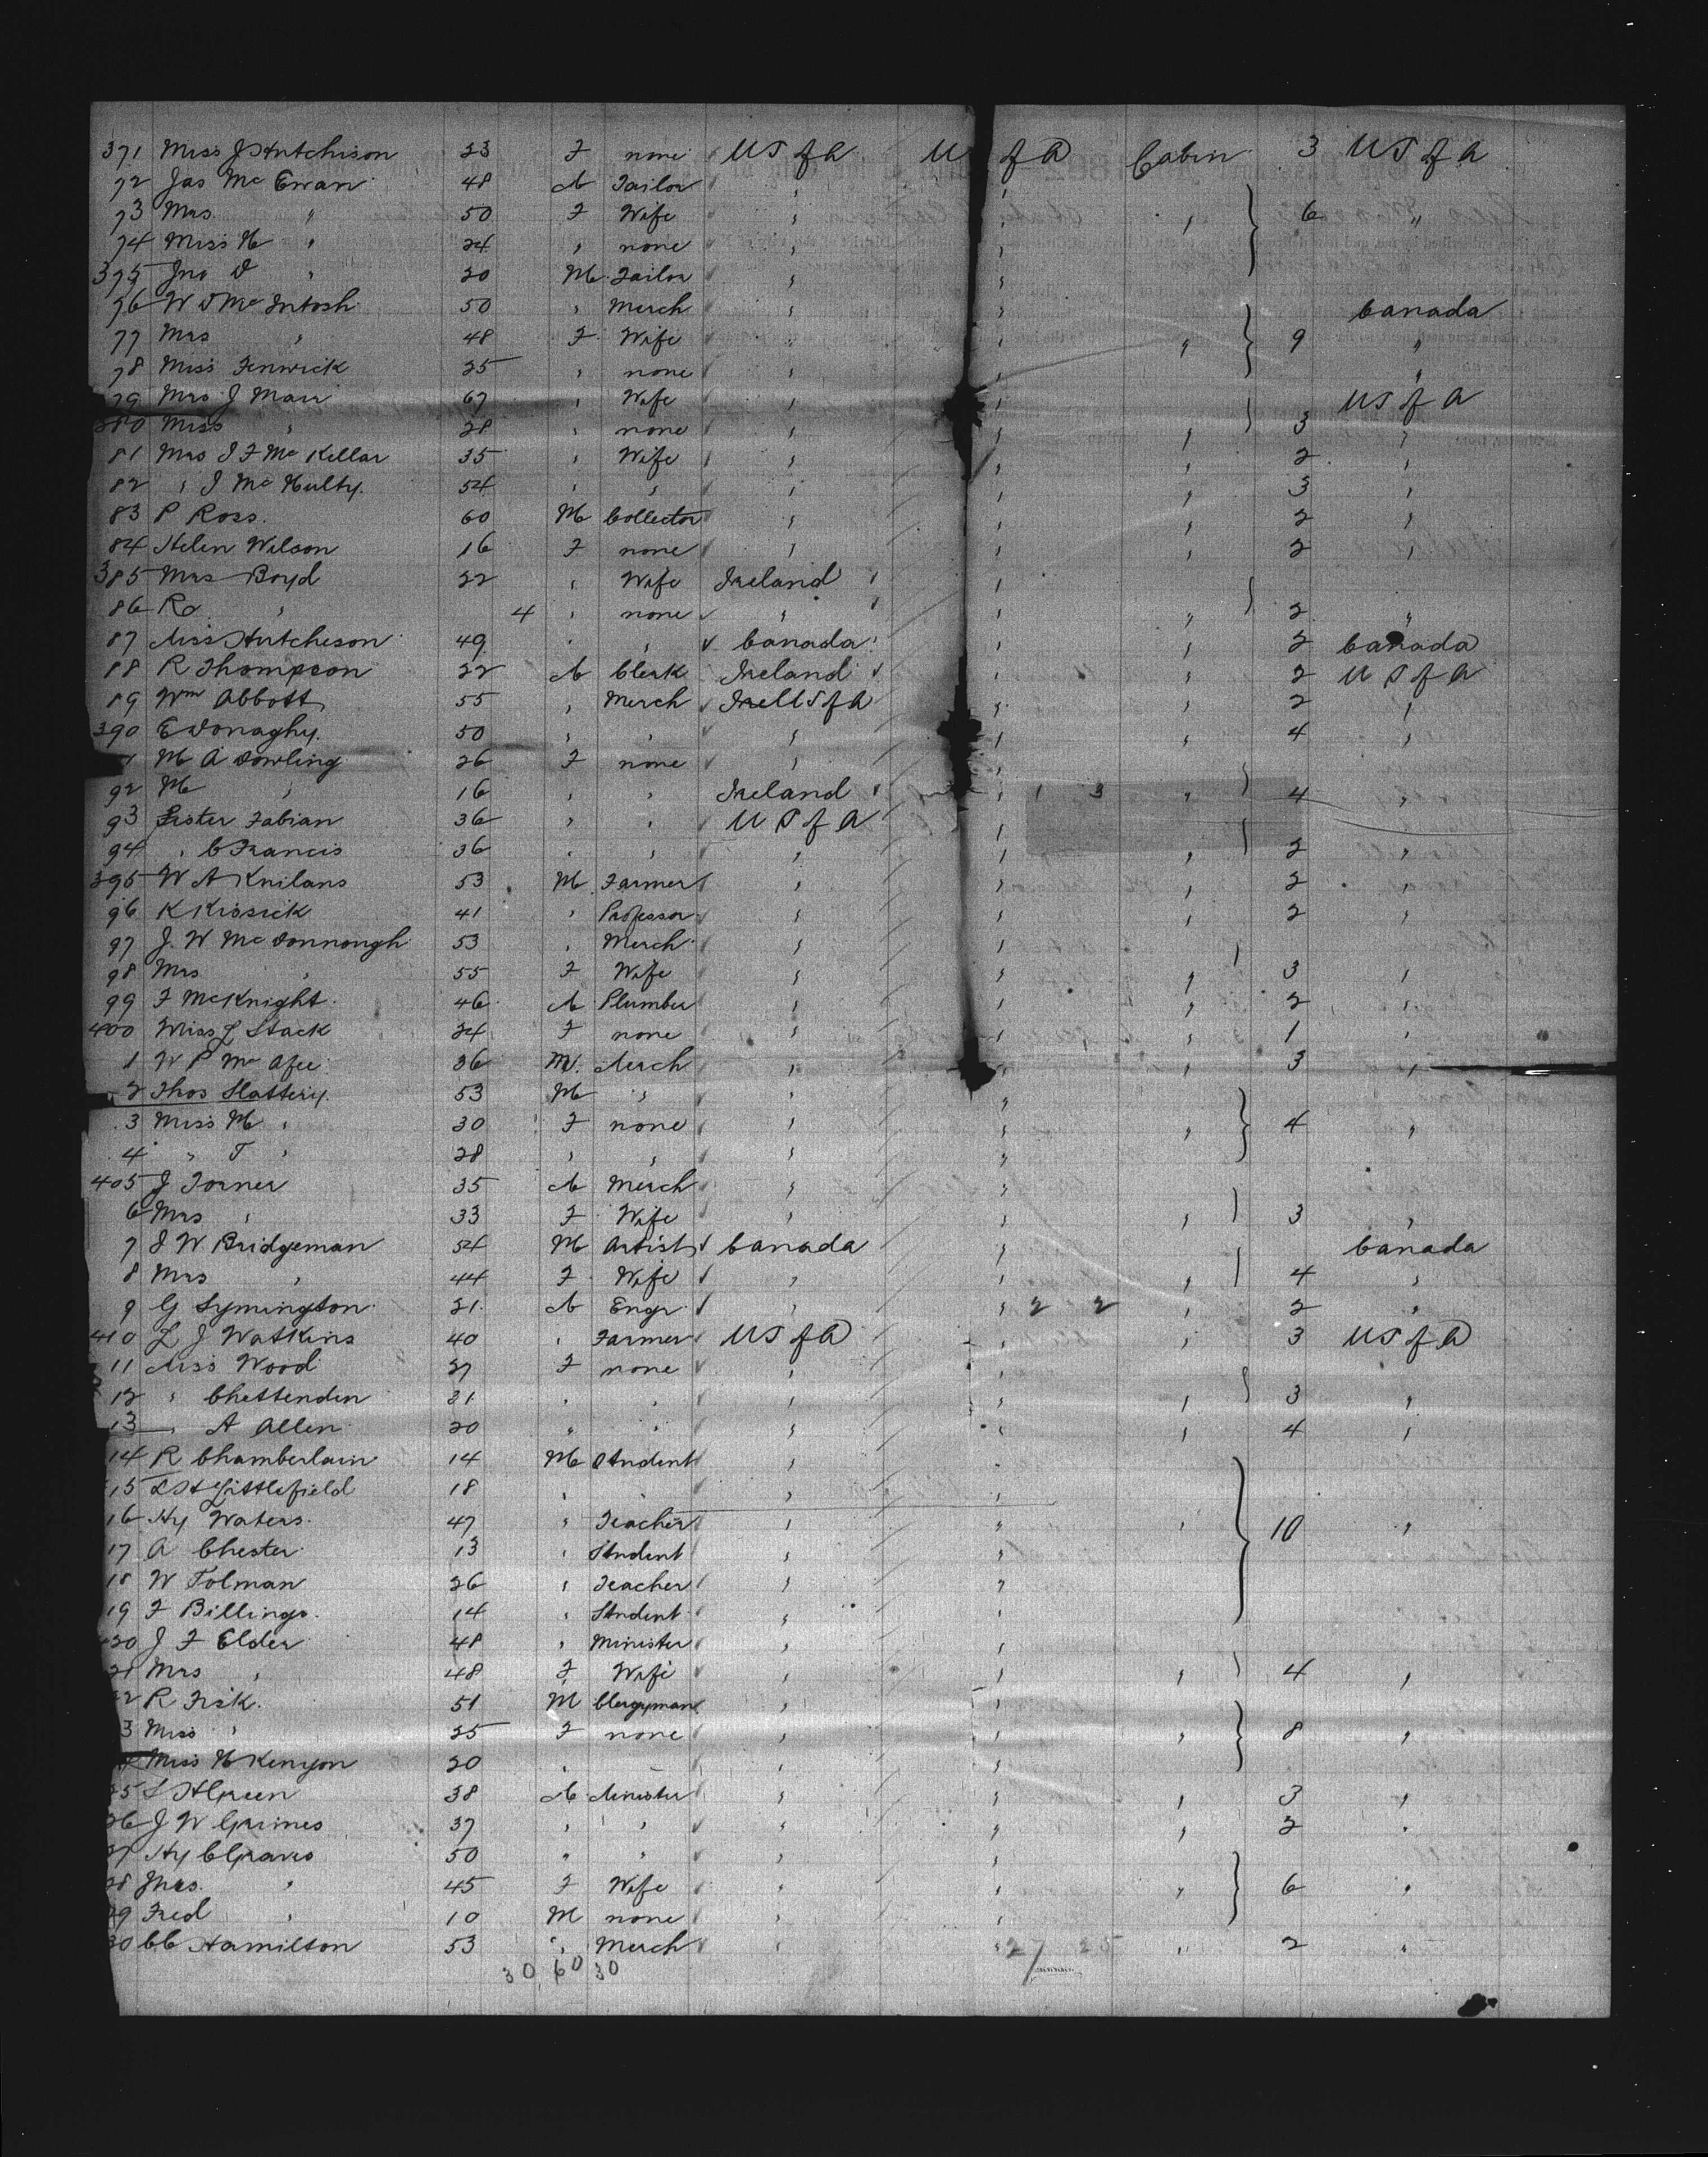 371 Miss J Hutchison 23 F none US of A U of A Cabin 3 US of A
72 Jas Mc Ewan 48 M Tailor "
73 Mrs " 50 F Wife " " " 6 "
74 Miss N " 24 " none " "
375 Jno D " 20 M Tailor " "
76 W D Mc Intosh 50 " Merch " " Canada
77 Mrs " 48 F Wife " " " 9 "
78 Miss Fenwick 25 " none " " "
79 Mrs J Marr 67 " Wife " " US of A
380 Miss " 28 " none " " " 3 "
81 Mrs J F Mc Kellar 35 " Wife " " " 2 "
82 " J Mc Nulty 54 " " " " " 3 "
83 P Ross. 60 M Collector " " " 2 "
84 Helen Wilson 16 F none " " " 2 "
385 Mrs Boyd 22 " Wife Ireland "
86 Ro " 4 " none " " " 2 "
87 Miss Hutcheson 49 " " Canada " " 2 Canada
88 R Thompson 22 M Clerk Ireland " " 2 US of A
89 Wm Abbott 55 " Merch US of A " " 2 "
390 E Donaghy. 50 " " " " " 4 "
1 M A Dowling 26 F none " "
92 M " 16 " " Ireland " 1 3 " 4 "
93 Sister Fabian 36 " " US of A "
94 " C Francis 36 " " " " " 2 "
395 W A Knilans 53 M Farmer " " " 2 "
96 K Kissick 41 " Professor " " " 2 "
97 J. W Mc Donnough 53 " Merch " "
98 Mrs " 55 F Wife " " " 3 "
99 F McKnight 46 M Plumber " " " 2 "
400 Miss L Stack 24 F none " " " 1 "
1 W P Mc Afee 36 M. Merch " " " 3 "
2 Thos Slattery. 53 M " " "
3 Miss M " 30 F none " " " 4 "
4 " T " 28 " " " "
405 J Torner 35 M Merch " "
6 Mrs " 33 F Wife " " " 3 "
7 J W Bridgeman 54 M Artist Canada " Canada
8 Mrs " 44 F Wife " " " 4 "
9 G Symington 21 M Engr " " 2 2 " 2 "
410 L J Watkins 40 " Farmer US of A " " 3 US of A
11 Miss Wood 27 F none " "
12 " Chettenden 21 " " " " " 3 "
13 " A Allen 20 " " " " " 4 "
14 R Chamberlain 14 M Student " "
15 Littlefield 18 " " " "
16 Hy Waters. 47 " Teacher " " " 10 "
17 A Chester 13 " Student " "
18 W Tolman 26 " Teacher " "
19 F Billings. 14 " Student " "
420 J F Elder 48 " Minister " "
21 Mrs " 48 F Wife " " " 4 "
22 R Fisk. 51 M Clergyman " "
3 Miss " 25 F none " " " 8 "
Miss N Kenyon 20 " " " "
25 S H Green 38 M Minister " " " 3 "
26 J W Grimes 37 " " " " " 2 "
27 Hy C Graves 50 " " " "
28 Mrs. " 45 F Wife " " " 6 "
29 Fred " 10 M none " "
30 CC Hamilton 53 " Merch " " 27 25 " 2 "
30 60 30